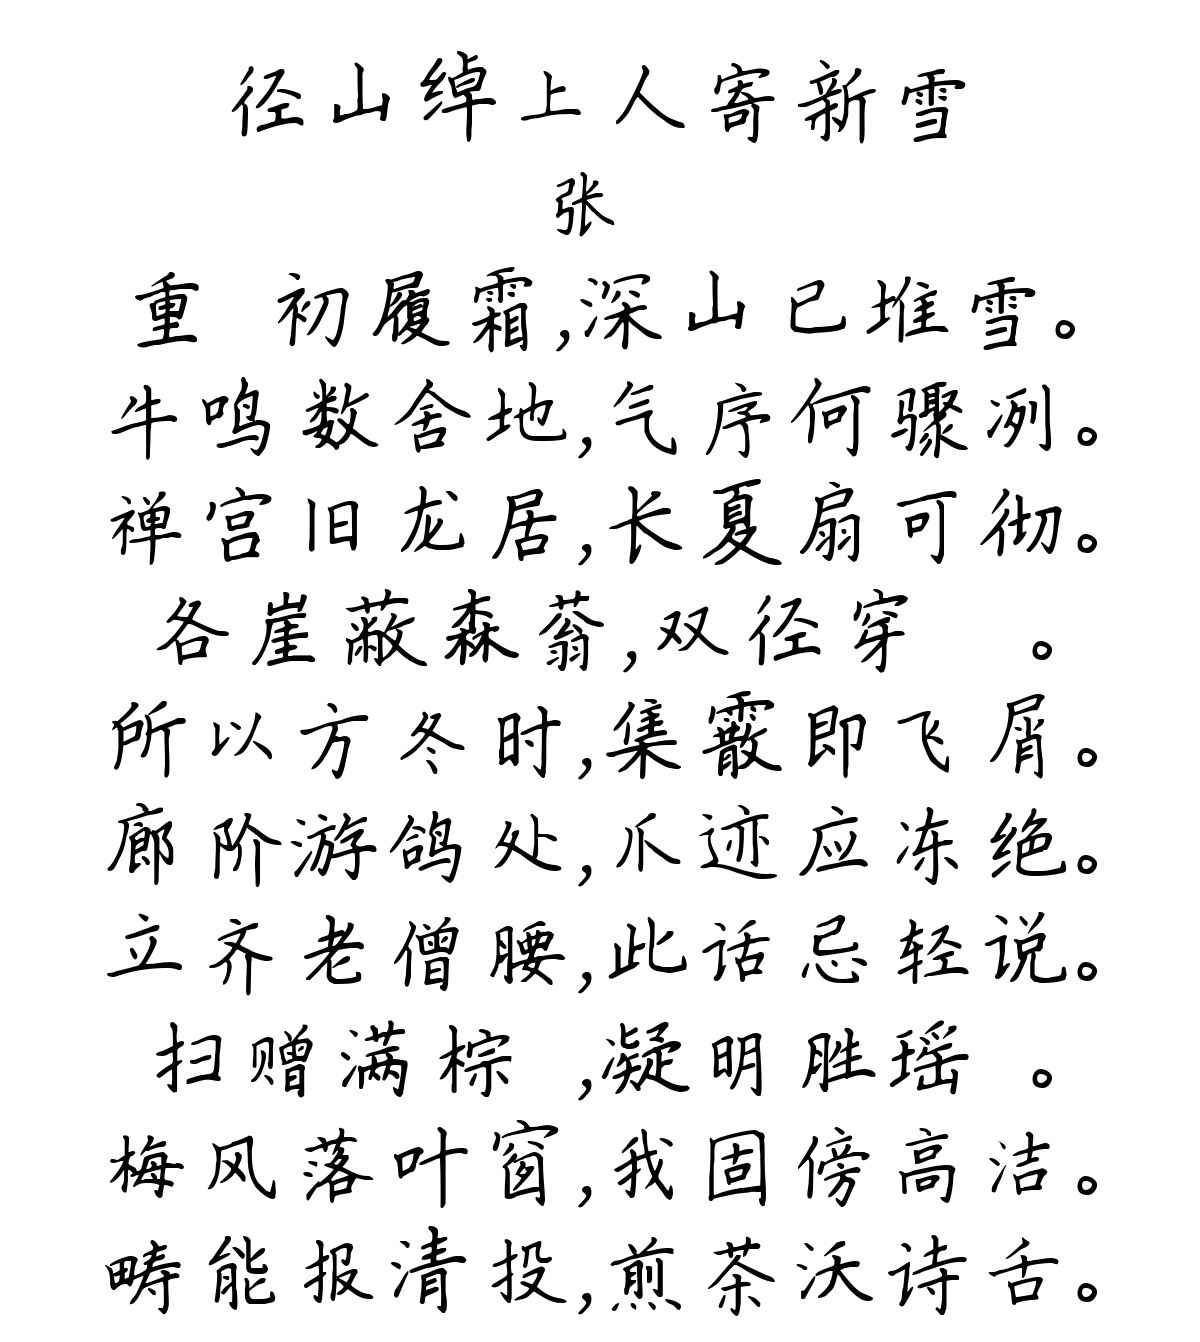 径山绰上人寄新雪
张
重 初履霜,深山已堆雪。
牛鸣数舍地,气序何骤冽。
禅宫旧龙居,长夏扇可彻。
各崖蔽森蓊,双径穿 。
所以方冬时,集霰即飞屑。
廊阶游鸽处,爪迹应冻绝。
立齐老僧腰,此话忌轻说。
扫赠满棕 ,凝明胜瑶 。
梅风落叶窗,我固傍高洁。
畴能报清投,煎茶沃诗舌。